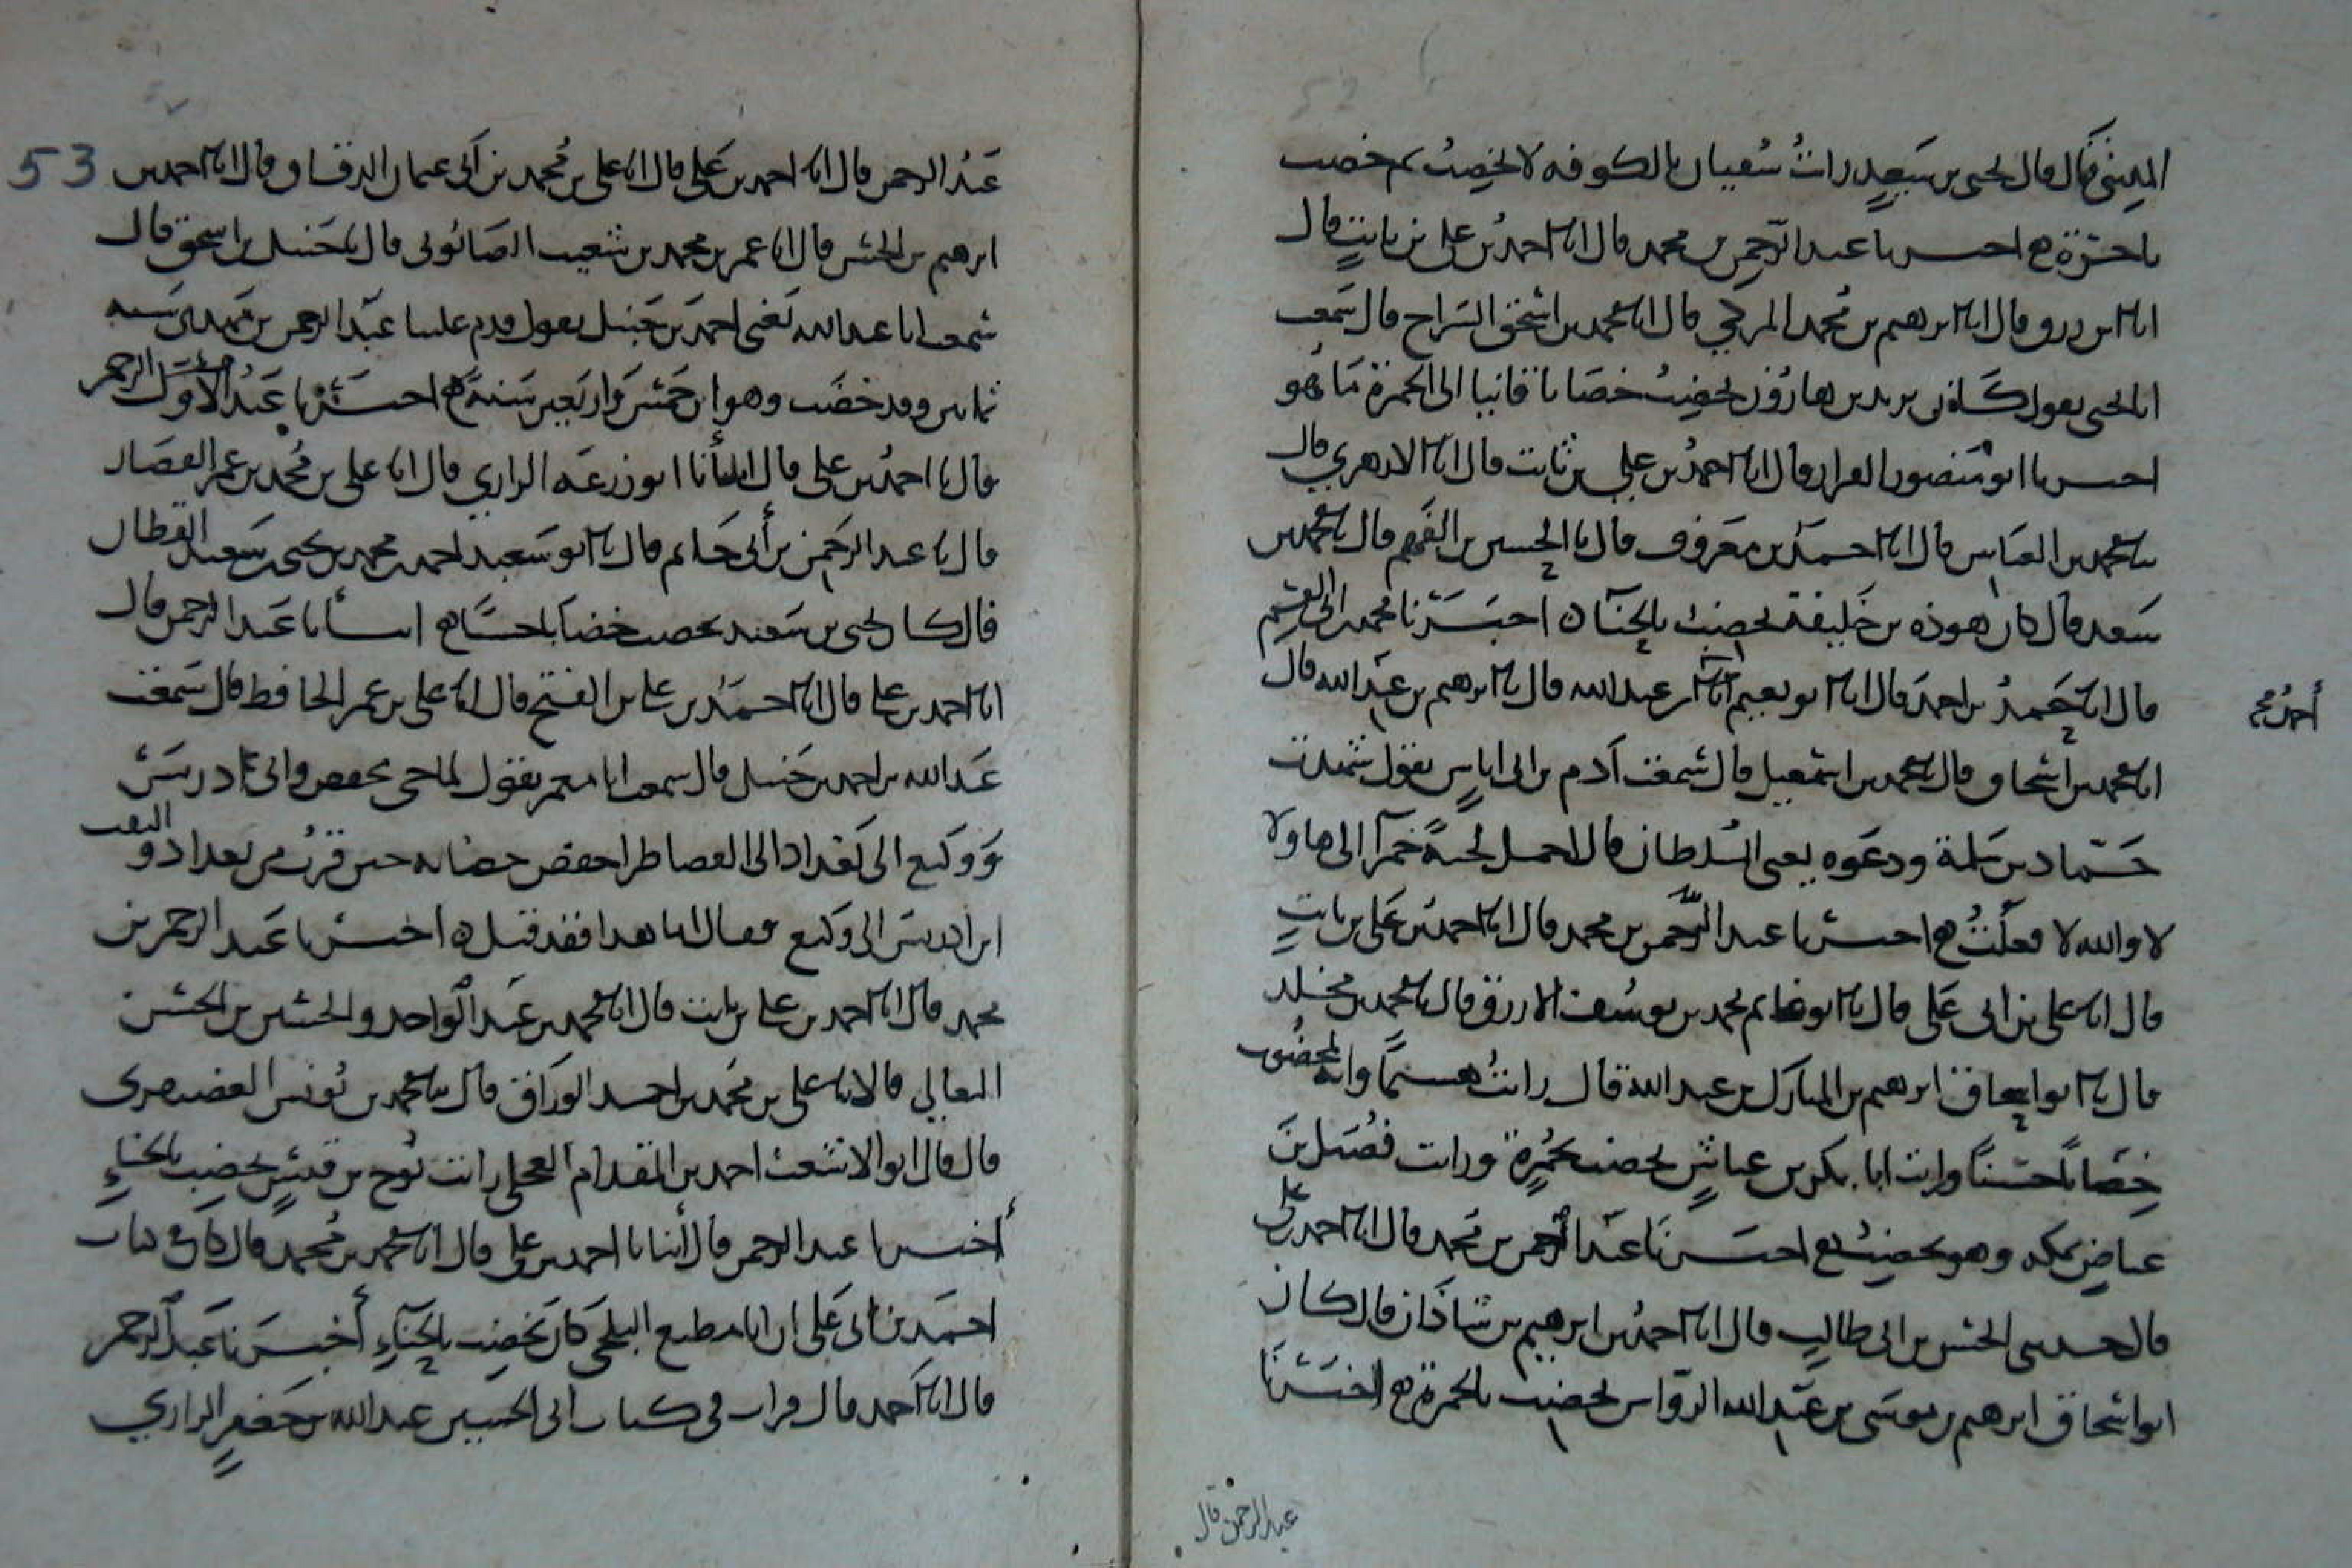 المديني قال قال يحيى بن سعيد رأيت سفيان بالكوفه لا يخضب ثم خضب
بأخرة ه اخبرنا عبد الرحمن بن محمد قال انا احمد بن علي بن ثابت قال
انا ابن رزق قال انا ابرهيم بن محمد المزكي قال انا محمد بن اسحق السراج قال سمعت
يقول كان يزيد بن هارون يخضب خضابا قانيا الى الحمرة ما هو
اخبرنا ابو منصور القزاز قال انا احمد بن علي بن ثابت قال انا الازهري قال
نا محمد بن العباس قال انا احمد بن معروف قال نا الحسين بن الفهم قال نا محمد بن
سعد قال كان هوذه بن خليفة يخضب بالحناء ه اخبرنا محمد بن ابي القسم
قال انا حمد بن احمد قال انا ابو نعيم احمد بن عبد الله قال نا ابرهيم بن عبد الله قال
أحمد
انا محمد بن اسحاق قال نا محمد بن اسمعيل قال سمعت آدم بن ابي اياس يقول شهدت
حماد بن سلمة ودعوه يعني السلطان قال احمل لحية حمرآ الى هاولا
لا والله لا فعلت ه اخبرنا عبد الرحمن بن محمد قال انا احمد بن علي بن ثابت
قال انا علي بن ابي علي قال نا ابو غانم محمد بن يوسف الازرق قال نا محمد بن مخلد
قال نا ابو اسحاق ابرهيم بن المبارك بن عبد الله قال رأيت هشيما وانه لمخضوب
خضابا حسنا ورايت ابا بكر بن عياش يخضب بحمرة ورايت فضيل بن
عياض بمكه وهو يخضب ه اخبرنا عبد الرحمن بن محمد قال انا احمد بن علي
قال حدثني الحسن بن ابي طالب قال انا احمد بن ابرهيم بن شاذان قال كان
ابو اسحاق ابرهيم بن موسى بن عبد الله الرواس يخضب بالحمرة ه اخبرنا
عبد الرحمن قال
53
عبد الرحمن قال انا احمد بن علي قال انا علي بن محمد بن ابي عثمان الدقاق قال انا احمد بن
ابرهيم بن الحسن قال انا عمر بن محمد بن شعيب الصابوني قال نا حنبل بن اسحق قال
سمعت ابا عبد الله يعني احمد بن حنبل يقول قدم علينا عبد الرحمن بن مهدي سنه
ثمانين وقد خضب وهو ابن خمس واربعين سنة ه اخبرنا عبد الرحمن
قال نا احمد بن علي قال انبأنا ابو زرعه الرازي قال انا علي بن محمد بن عمر القصار
قال نا عبد الرحمن بن أبي حاتم قال نا ابو سعيد احمد بن محمد بن يحيى بن سعيد القطان
قال كان يحيى بن سعيد يخضب خضابا حسنا ه انبأنا عبد الرحمن قال
انا احمد بن علي قال انا احمد بن علي بن الفتح قال انا علي بن عمر الحافظ قال سمعت
عبد الله بن احمد بن حنبل قال سمعت ابا معمر يقول لما جي بحفص وابن ادريس
ووكيع الى بغداد الى القضا طرا حفص خضابه حين قرب من بغداد والتفت
ابن ادريس الى وكيع فقال اما هذا فقد قبل ه اخبرنا عبد الرحمن بن
محمد قال انا احمد بن علي بن ثابت قال انا محمد بن عبد الواحد والحسن بن الحسن
النعالي قالا نا علي بن محمد بن احمد الوراق قال نا محمد بن يونس
قال قال ابو الاشعث احمد بن المقدام العجلي رايت نوح بن قيس يخضب بالحناء
أخبرنا عبد الرحمن قال أنبانا احمد بن علي قال انا محمد بن محمد قال كان في كتاب
احمد بن ابي علي ان ابا مطيع البلخي كان يخضب بالحناء أخبرنا عبد الرحمن
قال انا احمد قال قرات في كتاب ابي الحسين عبد الله بن جعفر الرازي